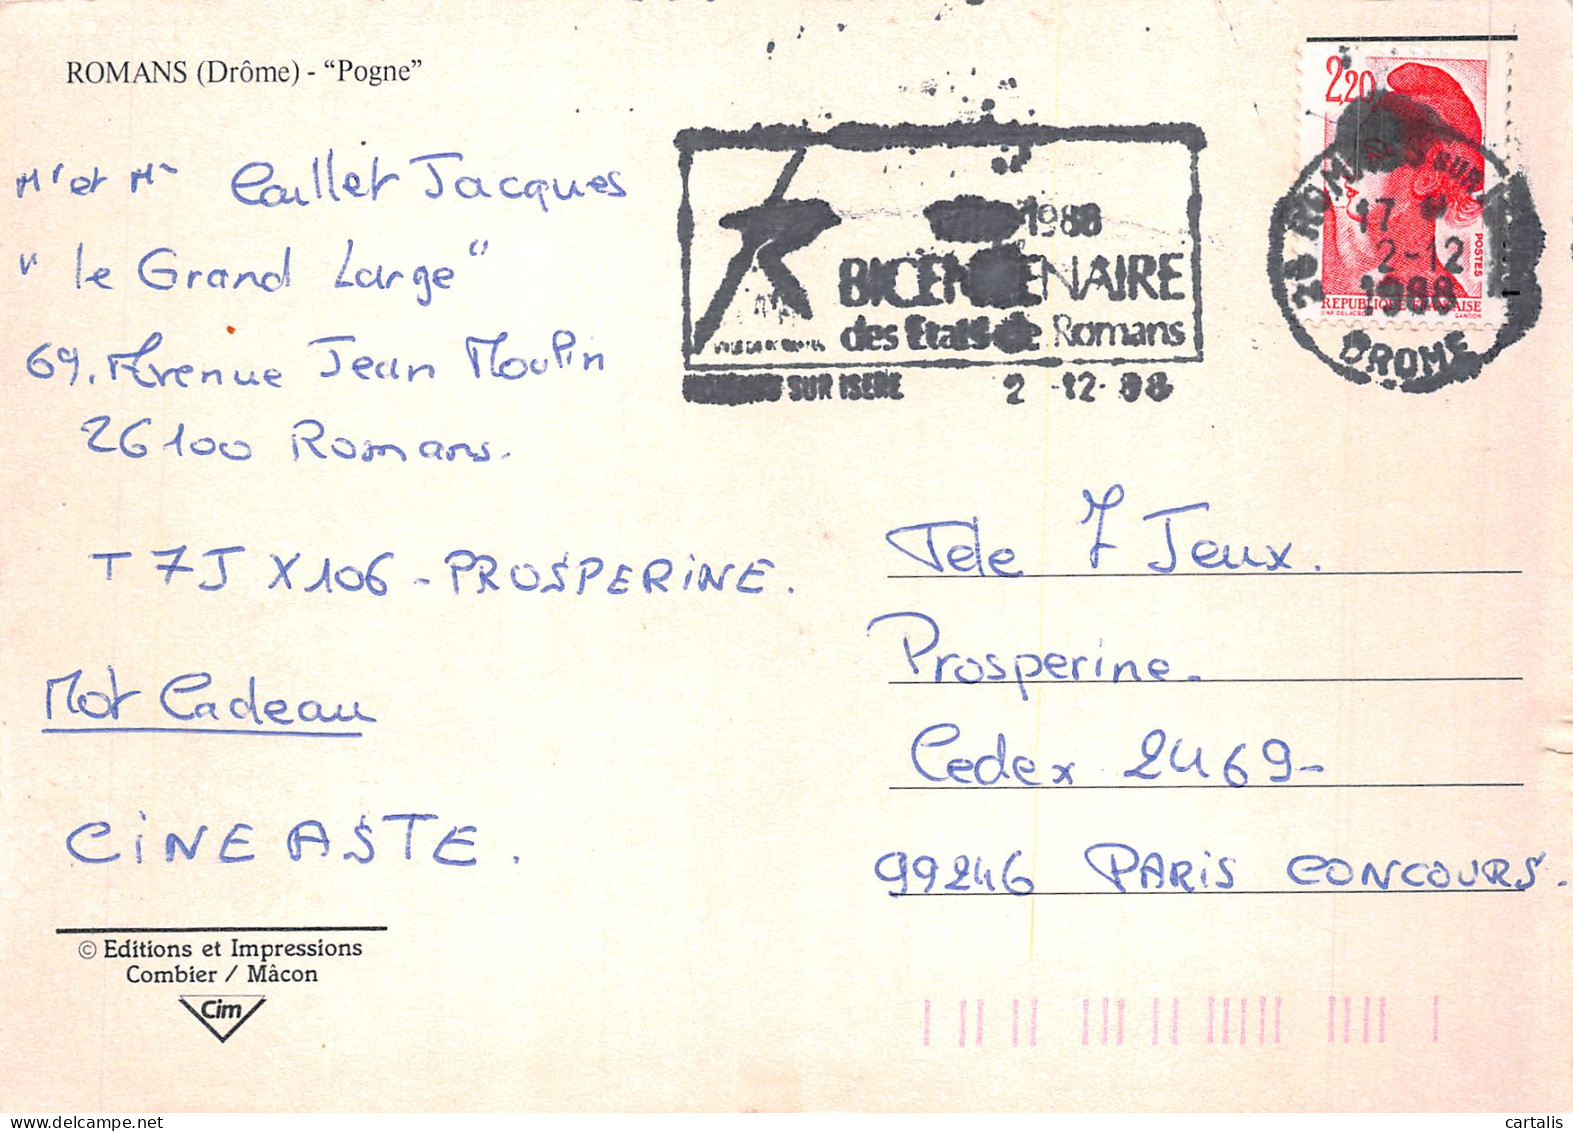 ROMANS (Drôme) - “Pogne”
Mr et Mme Caillet Jacques
" le Grand Large "
69. Avenue Jean Moulin
26100 Romans.
T 7 J X106 - PROSPERINE.
Mot Cadeau
CINEASTE.
© Editions et Impressions
Combier / Mâcon
Cim
1988
BICENTENAIRE
des Etats de Romans
ROMANS SUR ISERE 2 -12- 88
2,20
POSTES
REPUBLIQUE FRANÇAISE
D'AP. DELACROIX GANDON
26 ROMANS SUR ISERE
17 H
2-12
1988
DROME
Tele 7 Jeux.
Prosperine.
Cedex 2469-
99246 PARIS CONCOURS.
cartalis